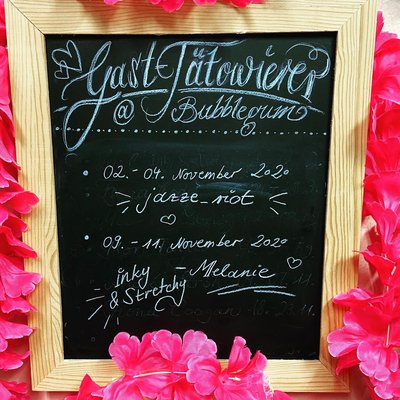 Gast-Tätowierer
@ Bubblegum
• 02.-04. November 2020
jazze_riot
• 09.-11. November 2020
inky - Melanie
& Stretchy